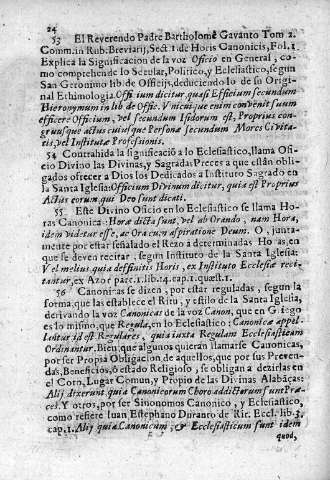 24
53 El Reverendo Padre Bartholomè Gavanto Tom 2.
Comm. in Rub: Breviarij, Sect 1. de Horis Canonicis, Fol. 1.
Explica la Significacion de la voz Oficio en General, co-
mo comprehende lo Secular, Politico, y Eclesiastico, segun
San Geronimo lib. de Officijs, deduciendo lo de su Origi-
nal Ethimologia. Offi ium dicitur, quasi Efficium secundum
Hieronymum in lib de Offic. V nicui que enim convenit suum
efficere Officium, vel secundum Isidorum est, Proprius con-
gruus que actus cuius que Personæ secundum Mores Civita-
tis, vel Institutæ Professionis.
54 Contrahida la significació a lo Eclesiastico, llama Ofi-
cio Divino las Divinas, y Sagradas Preces a que están obli-
gados ofrecer a Dios los Dedicados a Instituto Sagrado en
la Santa Iglesia: Officium Divinum dicitur, quia est Proprius
Actus eorum, qui Deo sunt dicati.
55 Este Divino Oficio en lo Eclesiastico se llama Ho-
ras Canonicas: Hora dicta sunt, vel ab Orando, nam Hora,
idem videtur esse, ac Ora cum aspiratione Deum. O, junta-
mente por estar señalado el Rezo a determinadas Horas, en
que se deven recitar, segun Instituto de la Santa Iglesia:
Vel melius quia deffinitis Horis, ex Instituto Ecclesiæ reci-
tantur, ex Azor parc. 1. lib. 14. cap 1. quest. 1.
56 Canonicas se dizen, por estar reguladas, segun la
forma, que las establece el Ritu, y estilo de la Santa Iglesia,
derivando la voz Canonicas de la voz Canon, que en Griego
es lo mismo, que Regula, en lo Eclesiastico: Canonicæ appel-
lantur id est Regulares, quia iuxta Regulam Ecclesiasticam
Ordinantur. Bien, que algunos quieran llamarse Canonicas,
por ser Propia Obligacion de aquellos, que por sus Preven-
das, Beneficios, ó estado Religioso, se obligan a dezirlas en
el Coro, Lugar Comun, y Propio de las Divinas Alabãças:
Alij dixerunt quia Canonicorum Choro addictarum sunt Pre-
ces. Y otros, por ser Sinonomos Canonico, y Eclesiastico,
como refiere Iuan Estephano Duranto de Rit. Eccl. lib. 3.
cap. 1. Alij quia Canonicum, & Ecclesiasticum sunt idem
quod,